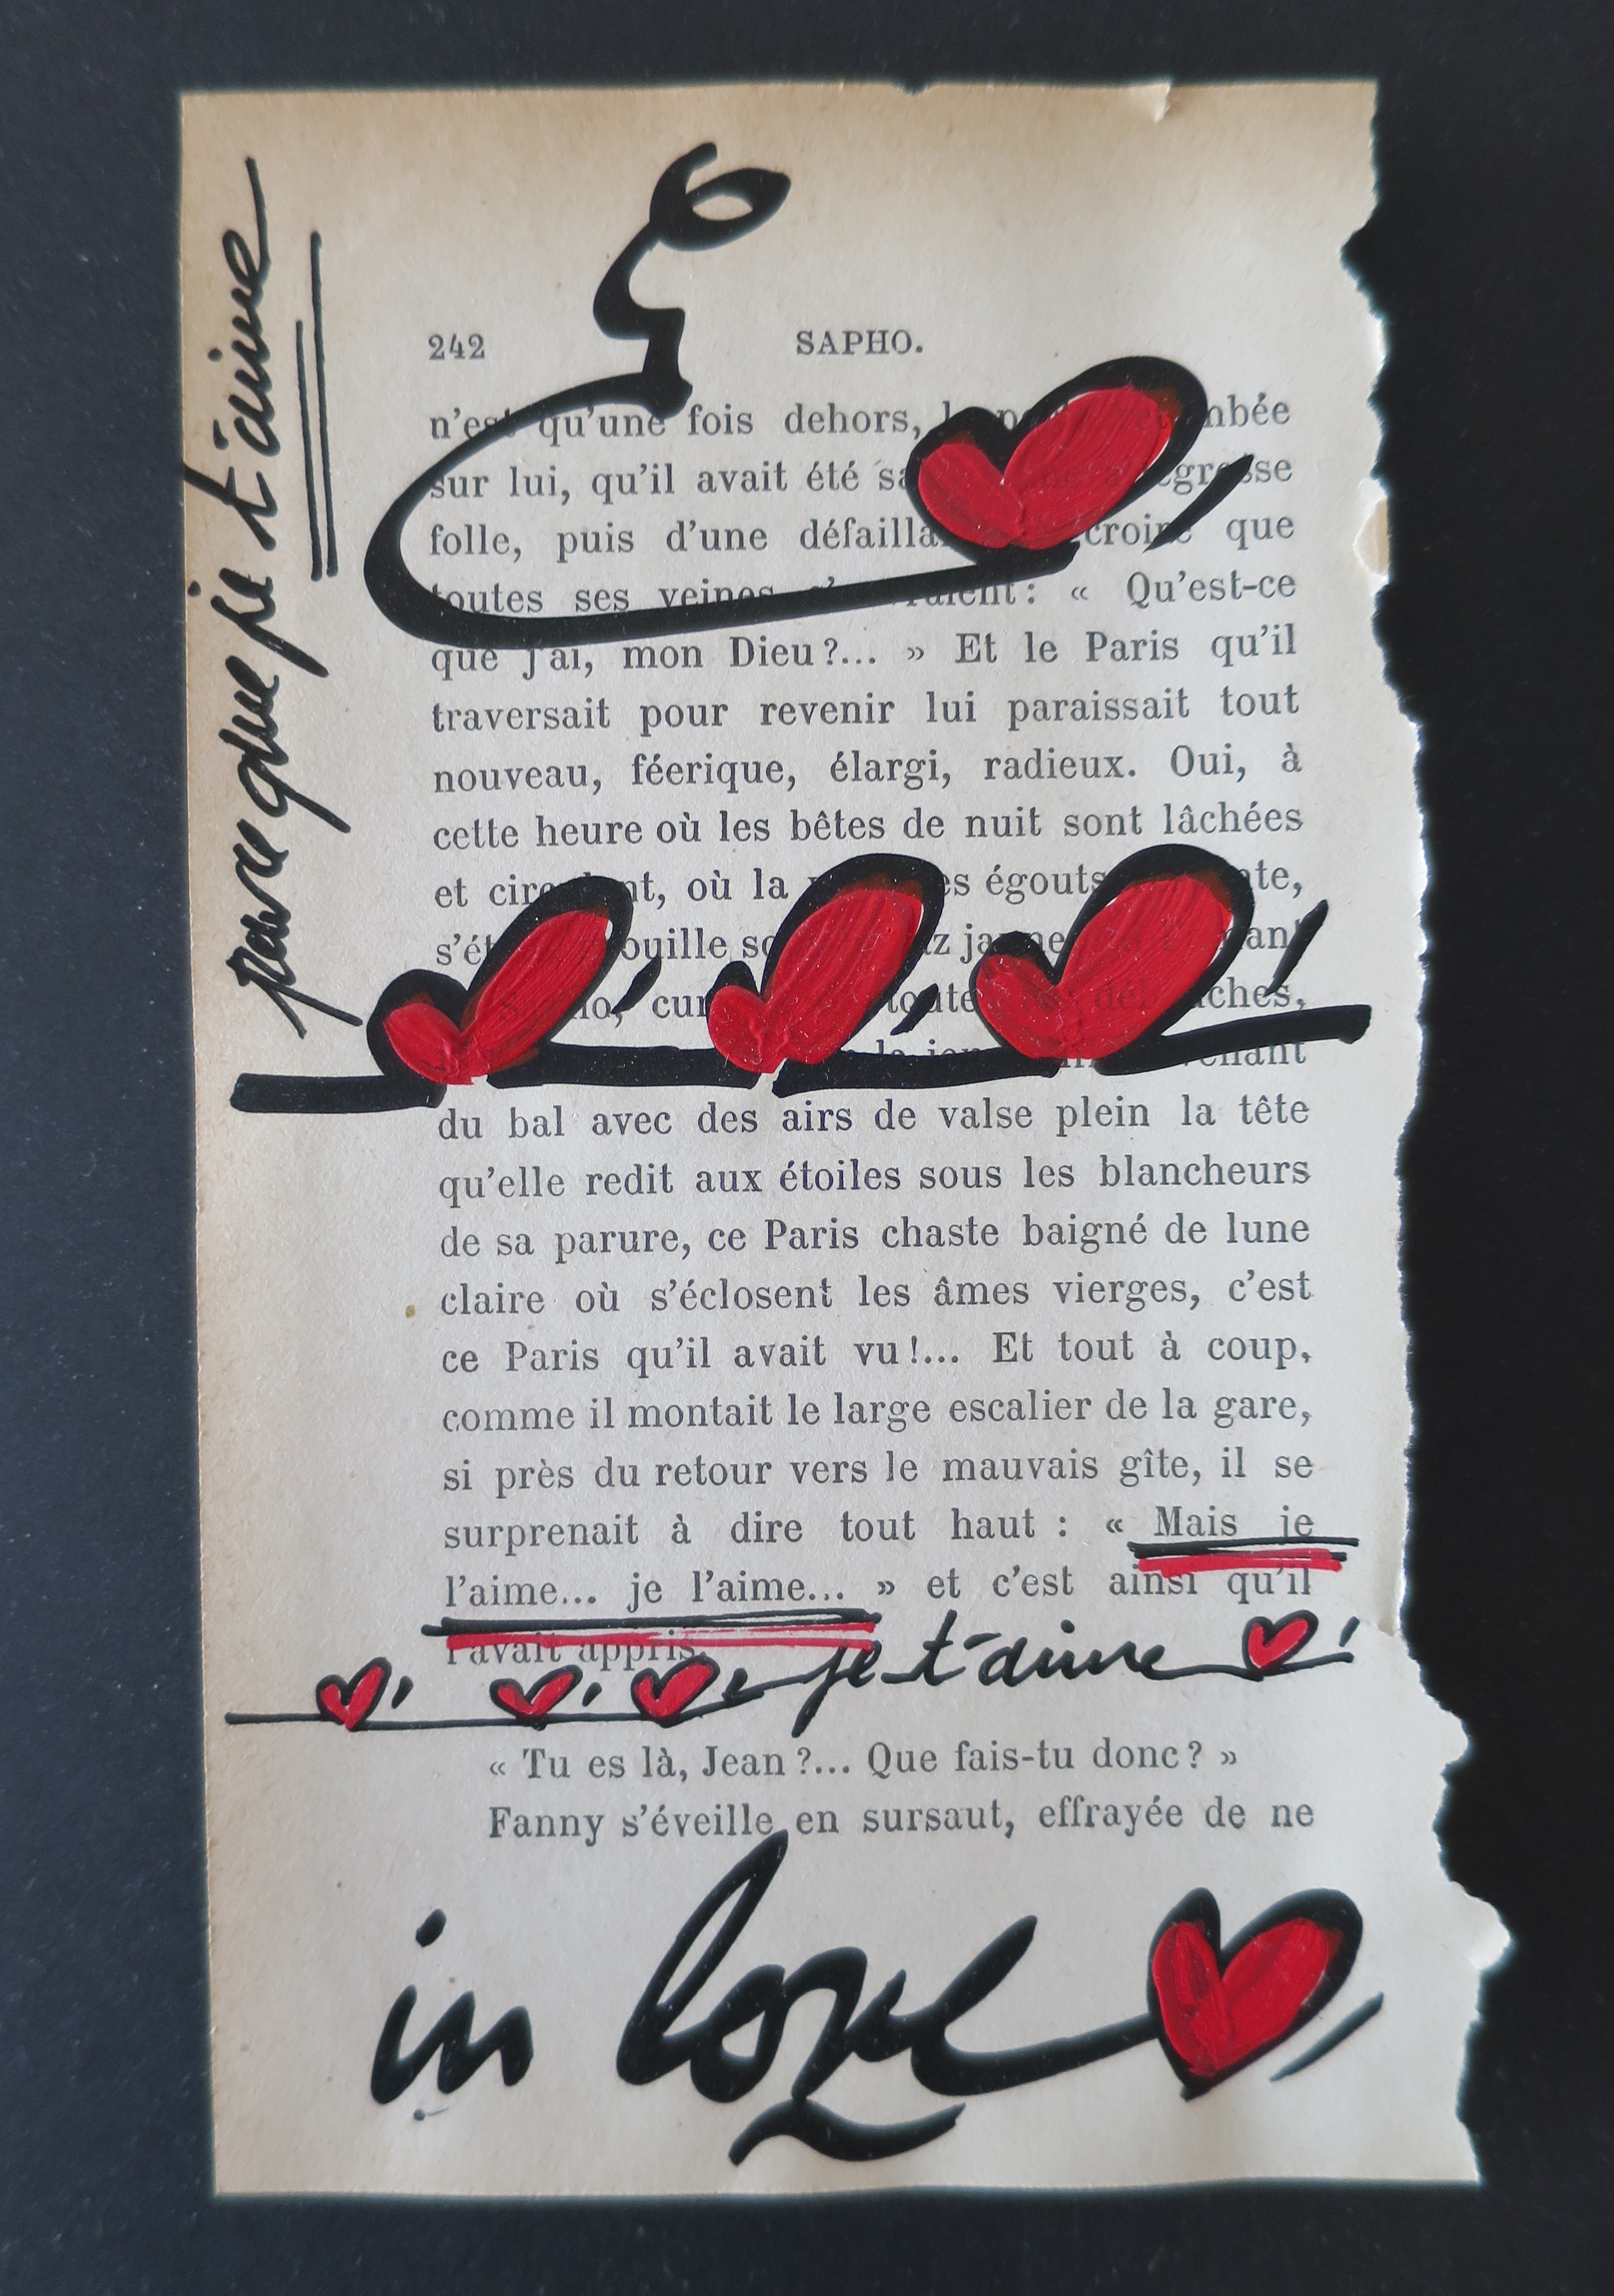 parce que je t'aime
242 SAPHO.
n'est qu'une fois dehors, tombée
sur lui, qu'il avait été
folle, puis d'une croire que
toutes ses veines : « Qu'est-ce
que j'ai, mon Dieu ?... » Et le Paris qu'il
traversait pour revenir lui paraissait tout
nouveau, féerique, élargi, radieux. Oui, à
cette heure où les bêtes de nuit sont lâchées
et où la égouts
gaz jaune
toutes
la
du bal avec des airs de valse plein la tête
qu'elle redit aux étoiles sous les blancheurs
de sa parure, ce Paris chaste baigné de lune
claire où s'éclosent les âmes vierges, c'est
ce Paris qu'il avait vu !... Et tout à coup,
comme il montait le large escalier de la gare,
si près du retour vers le mauvais gîte, il se
surprenait à dire tout haut : « Mais je
l'aime... je l'aime... » et c'est ainsi qu'il
l'avait appris.
je t'aime
« Tu es là, Jean ?... Que fais-tu donc ? »
Fanny s'éveille en sursaut, effrayée de ne
in love